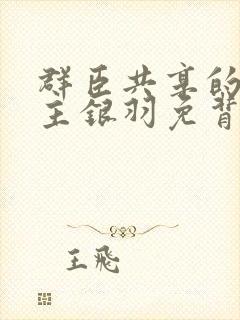 群臣共享的
王银羽免背
王飛